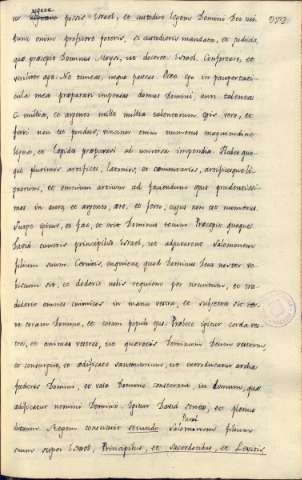 regere
ut regere possis Israel, et custodire legem Domini Dei tui
tunc enim proficere poteris, si custodieris mandata, et judicia
quæ præcepit Dominus Moysi, ut doceret Israel. Confortare, et
viriliter age. Ne timeas, neque paveas. Ecce ego in paupertati-
cula mea præparavi impensas domus Domini, auri talenta
c. millia, et argenti mille millia talentorum, æris vero, et
ferri non est pondus, vincitur enim numerus magnitudine
ligna, et lapides præparavi ad universa impendia. Habes quo-
que plurimos artifices, latomos, et cæmentarios, artificesque li-
gnorum, et omnium artium ad faciendum opus prudentissi-
mos in auro, et argento, ære, et ferro, cujus non est numerus.
Surge igitur, et fac, et erit Dominus tecum. Præcepit quoque
David cunctis principibus Israel, ut adjuvarent Salomonem
filium suum. Cernitis, inquiens, quod Dominus Deus vester vo-
biscum sit, et dederit vobis requiem per circuitum, et tra-
diderit omnes inimicos in manu vestra, et subjecta sit ter-
ra coram Domino, et coram populo ejus. Præbete igitur corda ves-
tra, et animas vestras, ut quæratis Dominum Deum vestrum
et consurgite, et ædificate sanctuarium, ut introducatur arcba
fœderis Domini, et vasa Domino consecrata in domum, quæ
ædificatur nomini Domini. Igitur David senex, et plenus
dierum Regem constituit Salomonem filium
suum super Israel, Principibus, et Sacerdotibus, et Levitis